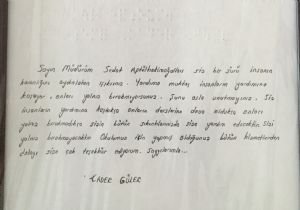 Sayın Müdürüm Sedat siz bir sürü insanın
karanlığını aydınlatan ışıksınız. Yardıma muhtaç insanların yardımına
koşuyor, onları yalnız bırakmıyorsunuz. Şunu asla unutmayınız. Siz
insanların yardımına koştukça onların dertlerine derman oldukça onları
yalnız bırakmadıkça sizin bütün sıkıntılarınızda size yardım edecektir. Sizi
yalnız bırakmayacaktır. Okulumuz için yapmış olduğunuz bütün hizmetlerden
dolayı size çok teşekkür ediyorum. Saygılarımla...
KADER GÜLER